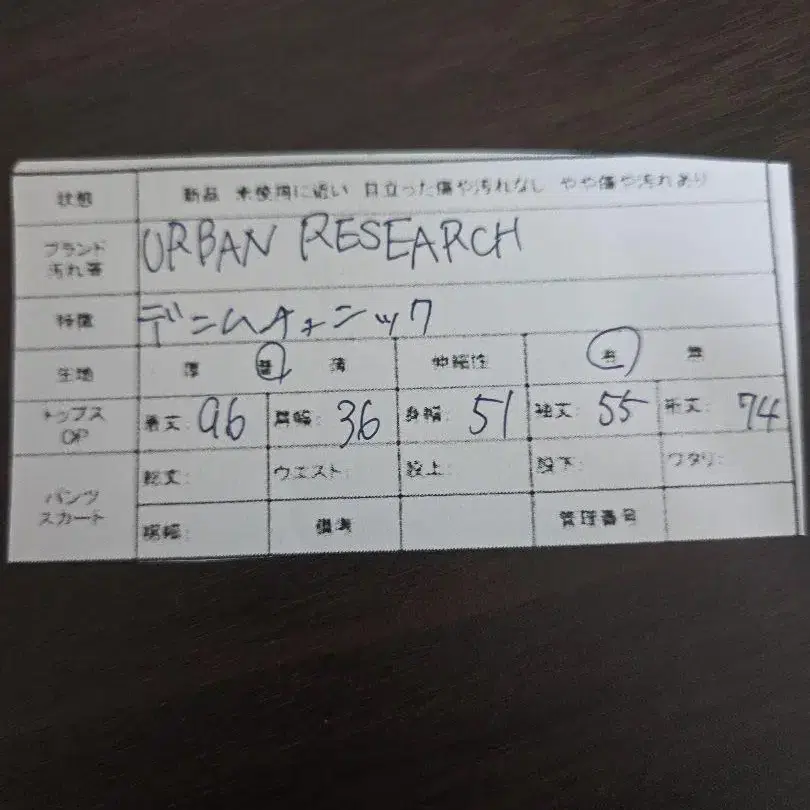 状態 新品 未使用に近い 目立った傷や汚れなし やや傷や汚れあり
ブランド URBAN RESEARCH
汚れ等
特徴 デニムチュニック
生地 厚 普 薄 伸縮性 有 無
トップス OP 着丈: 96 肩幅: 36 身幅: 51 袖丈: 55 裄丈: 74
パンツ スカート 総丈: ウエスト: 股上: 股下: ワタリ:
裾幅: 備考 管理番号